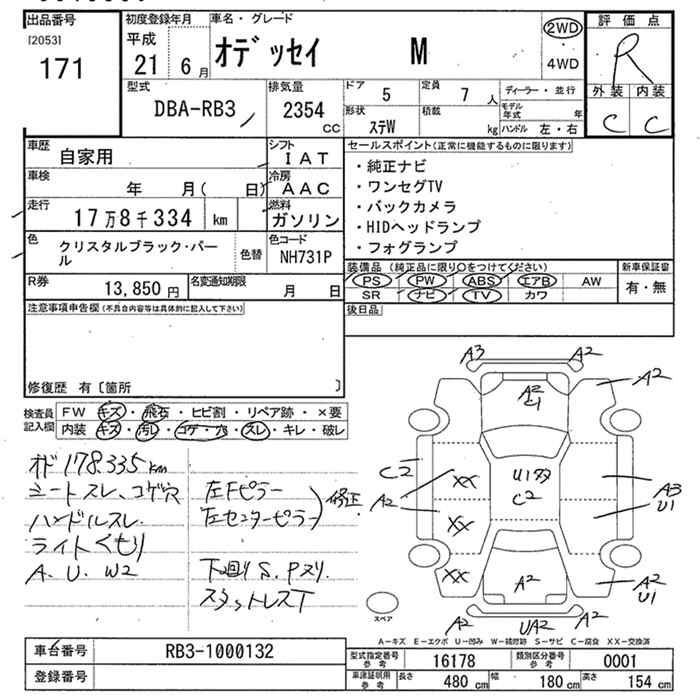 出品番号
[2053]
171
初度登録年月
平成
21 6月
車名・グレード
オデッセイ M
2WD
4WD
評価点
R
外装 内装
C C
型式
DBA-RB3
排気量
2354
CC
ドア 5
定員 7人
形状 ステW
積載 kg
ディーラー・並行
モデル年式 年
ハンドル 左・右
車歴 自家用
シフト IAT
車検 年 月( 日)
冷房 AAC
走行 17万8千334 km
燃料 ガソリン
色 クリスタルブラック・パール
色替
色コード NH731P
R券 13,850円
名変通知期限 月 日
セールスポイント(正常に機能するものに限ります)
・純正ナビ
・ワンセグTV
・バックカメラ
・HIDヘッドランプ
・フォグランプ
装備品 (純正品に限り○をつけてください)
PS PW ABS エアB AW
SR ナビ TV カワ
新車保証書
有・無
後日品
注意事項申告欄(不具合内容等は具体的に記入して下さい)
修復歴 有〔箇所 〕
検査員記入欄
FW キズ・飛石・ヒビ割・リペア跡・×要
内装 キズ・汚レ・コゲ・穴・スレ・キレ・破レ
オド178.335km
シートスレ、コゲ穴
ハンドルスレ
ライトくもり
A. U. W2
左Fピラー
左センターピラー
修正
下回りS.Pスリ.
スタットレスT
A3 A2
A2
A2
C1
C2
A2
XX
XX
XX
U1
C2
A3
U1
A2
A2
U1
A2 UA2 A2
スペア
A-キズ E-エクボ U-凹み W-補修跡 S-サビ C-腐食 XX-交換済
車台番号 RB3-1000132
登録番号
型式指定番号 参考 16178
類別区分番号 参考 0001
車検証明用 参考
長さ 480 cm
幅 180 cm
高さ 154 cm